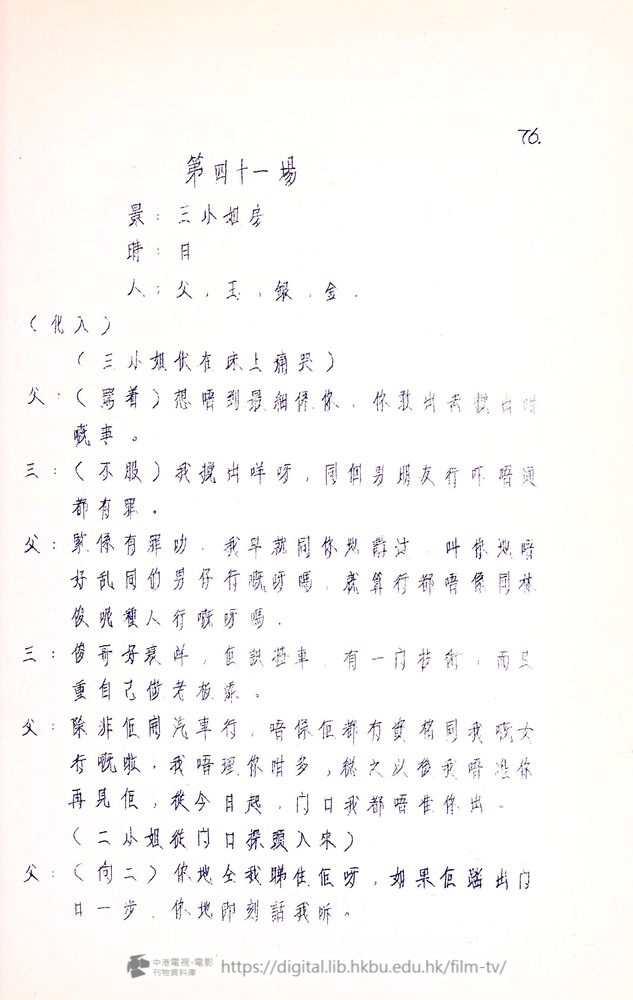 76.
第四十一場
景：三小姐房
時：日
人：父，玉，銀，金．
（化入）
（三小姐伏在床上痛哭）
父：（罵着）想唔到最細係你．你敢出去攪出咁
嘅事。
三：（不服）我攪出咩呀，同個男朋友行吓唔通
都有罪。
父：緊係有罪叻．我早就同你哋講过．叫你哋唔
好乱同的男仔行嘅呀嗎．就算行都唔係同林
俊呢種人行嘅呀嗎．
三：俊哥好衰咩，佢識揸車．有一门技術，而且
重自己做老板添。
父：除非佢開汽車行，唔係佢都冇資格同我嘅女
行嘅啦，我唔理你咁多，總之以後我唔准你
再見佢，從今日起，门口我都唔准你出。
（二小姐從门口探頭入來）
父：（向二）你地全我睇住佢呀，如果佢踏出门
口一步．你地即刻話我聽。
中港電視·電影
刊物資料庫
https://digital.lib.hkbu.edu.hk/film-tv/